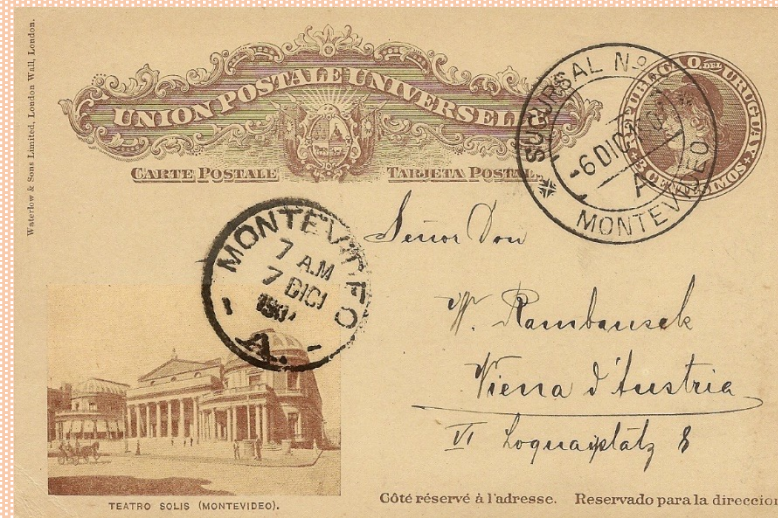 Waterlow & Sons Limited, London Wall, London.
UNION POSTALE UNIVERSELLE
CARTE POSTALE TARJETA POSTAL
REPUBLICA O. DEL URUGUAY
SUCURSAL No
-6 DIC
A
MONTEVIDEO
MONTEVIDEO
7 A.M
7 DICI
A.
Señor Don
W. Rambausek
Viena d'Austria
VI Loquaiplatz 8
TEATRO SOLIS (MONTEVIDEO).
Côté réservé à l'adresse. Reservado para la direccion